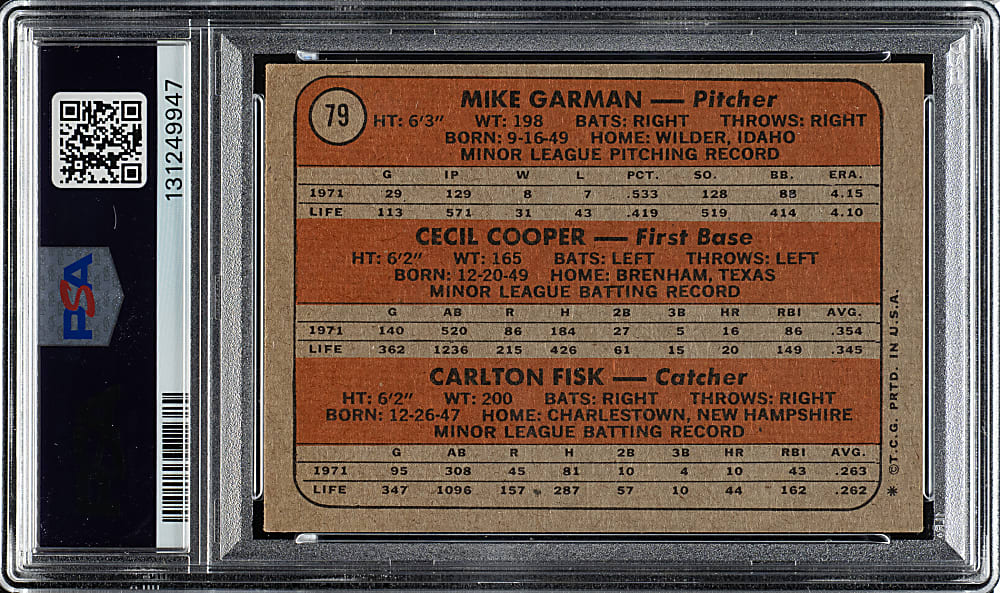 131249947
PSA
79
MIKE GARMAN — Pitcher
HT: 6'3" WT: 198 BATS: RIGHT THROWS: RIGHT
BORN: 9-16-49 HOME: WILDER, IDAHO
MINOR LEAGUE PITCHING RECORD
G IP W L PCT. SO. BB. ERA.
1971 29 129 8 7 .533 128 88 4.15
LIFE 113 571 31 43 .419 519 414 4.10
CECIL COOPER — First Base
HT: 6'2" WT: 165 BATS: LEFT THROWS: LEFT
BORN: 12-20-49 HOME: BRENHAM, TEXAS
MINOR LEAGUE BATTING RECORD
G AB R H 2B 3B HR RBI AVG.
1971 140 520 86 184 27 5 16 86 .354
LIFE 362 1236 215 426 61 15 20 149 .345
CARLTON FISK — Catcher
HT: 6'2" WT: 200 BATS: RIGHT THROWS: RIGHT
BORN: 12-26-47 HOME: CHARLESTOWN, NEW HAMPSHIRE
MINOR LEAGUE BATTING RECORD
G AB R H 2B 3B HR RBI AVG.
1971 95 308 45 81 10 4 10 43 .263
LIFE 347 1096 157 287 57 10 44 162 .262
* ©T.C.G. PRTD. IN U.S.A.